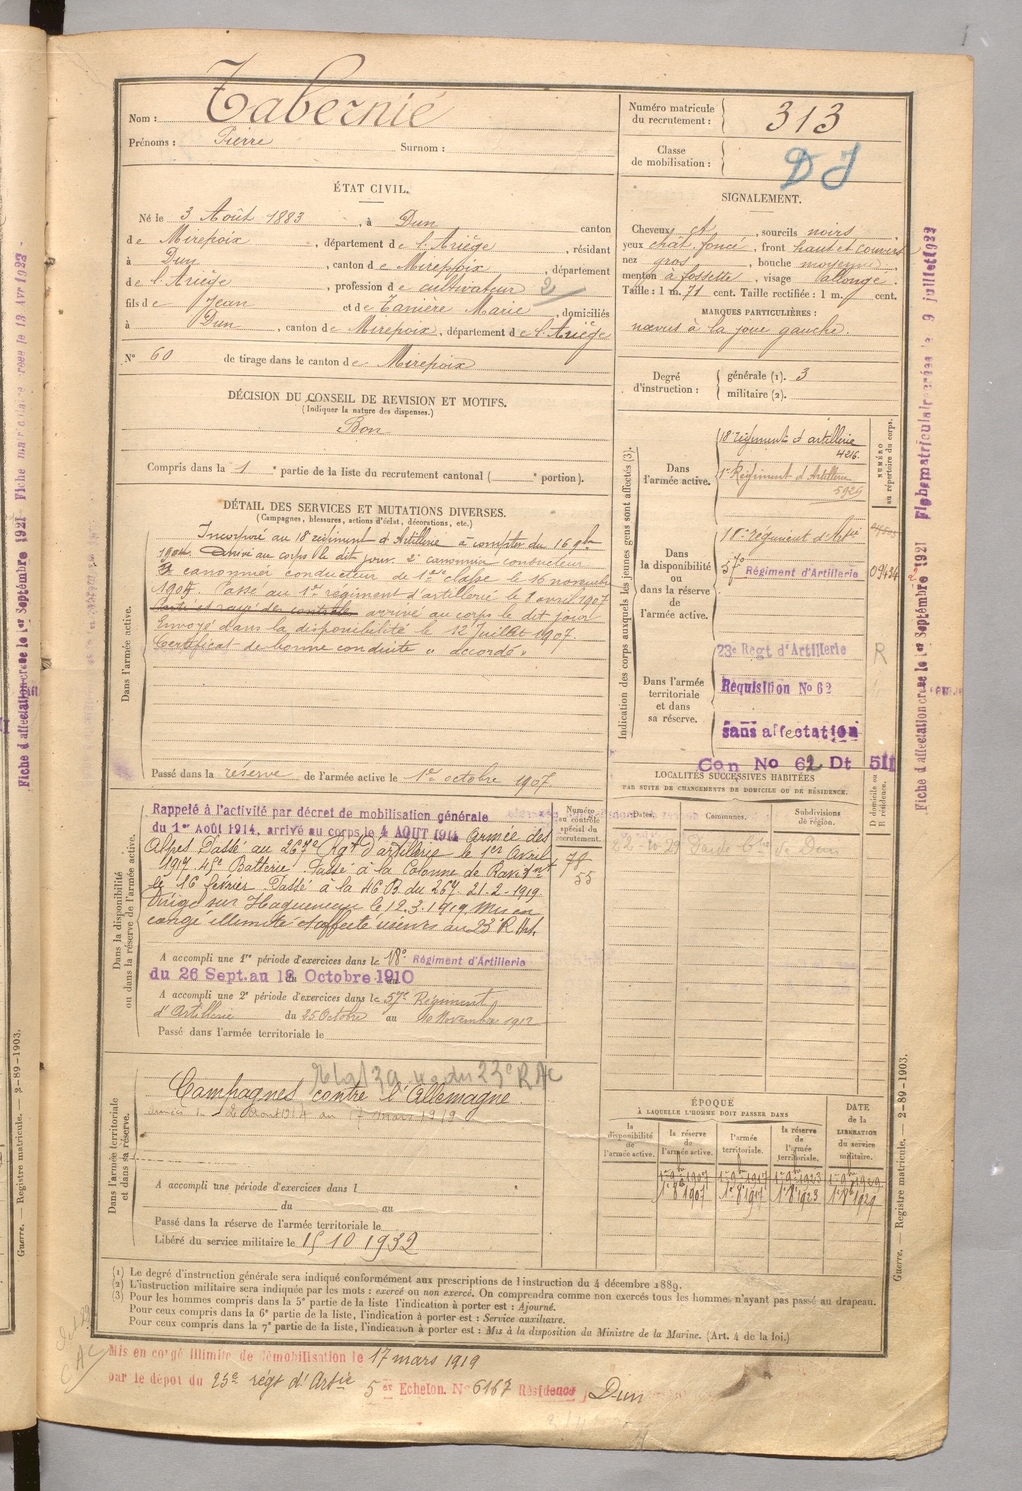 Nom : Tabernié
Prénoms : Pierre Surnom :
Numéro matricule du recrutement : 313
Classe de mobilisation :
DJ
ÉTAT CIVIL.
Né le 3 Août 1883, à Dun canton
de Mirepoix, département de l'Ariège, résidant
à Dun, canton de Mirepoix, département
de l'Ariège, profession de cultivateur 2
fils de Jean et de Tanière Marie, domiciliés
à Dun, canton de Mirepoix, département de l'Ariège
N° 60 de tirage dans le canton de Mirepoix
SIGNALEMENT.
Cheveux et, sourcils noirs
yeux chat. foncé, front haut et couvert
nez gros, bouche moyenne
menton à fossette, visage allongé
Taille : 1 m. 71 cent. Taille rectifiée : 1 m. cent.
MARQUES PARTICULIÈRES :
nævus à la joue gauche.
Degré d'instruction : générale (1). 3
militaire (2).
DÉCISION DU CONSEIL DE REVISION ET MOTIFS.
(Indiquer la nature des dispenses.)
Bon
Compris dans la 1e partie de la liste du recrutement cantonal ( e portion).
DÉTAIL DES SERVICES ET MUTATIONS DIVERSES.
(Campagnes, blessures, actions d'éclat, décorations, etc.)
Dans l'armée active.
Incorporé au 18e régiment d'Artillerie à compter du 16 9bre
1904. Arrivé au corps le dit jour. 2e canonnier conducteur
canonnier conducteur de 1ere classe le 16 novembre
1905. Passé au 1er régiment d'artillerie le 1 avril 1907
arrivé au corps le dit jour
Envoyé dans la disponibilité le 12 Juillet 1907.
Certificat de bonne conduite « accordé »
Passé dans la réserve de l'armée active le 1er octobre 1907.
Indication des corps auxquels les jeunes gens sont affectés (3).
NUMÉRO au répertoire du corps.
Dans l'armée active.
18e régiment d'artillerie
4216
1er Régiment d'Artillerie
5929
Dans la disponibilité ou dans la réserve de l'armée active.
18e régiment d'Artie
57e Régiment d'Artillerie 09434
Dans l'armée territoriale et dans sa réserve.
23e Régt d'Artillerie R
Réquisition No 62
sans affectation
Can No 62 Dt 511
LOCALITÉS SUCCESSIVES HABITÉES
PAR SUITE DE CHANGEMENTS DE DOMICILE OU DE RÉSIDENCE.
Dates. Communes. Subdivisions de région. D domicile ou R résidence.
Dans la disponibilité ou dans la réserve de l'armée active.
Rappelé à l'activité par décret de mobilisation générale
du 1er Août 1914, arrivé au corps le 4 AOUT 1914 Armée des
Alpes. Passé au 267e Rgt d'artillerie le 1er Avril
1917 45e Batterie. Passé à la Colonne de Ravit nt
le 16 février. Passé à la 46 B du 267 21-2-1919.
Dirigé sur Haguenau le 12.3.1919 Mis en
congé illimité et affecté réserve au 23e R Art.
Numéro au contrôle spécial du recrutement.
78
55
A accompli une 1re période d'exercices dans le 18e Régiment d'Artillerie
du 26 Sept. au 18 Octobre 1910
A accompli une 2e période d'exercices dans le 57e Régiment
d'Artillerie du 25 Octobre au 10 Novembre 1912
Passé dans l'armée territoriale le
du 23e RAC
Dans l'armée territoriale et dans sa réserve.
Campagnes contre l'Allemagne.
au 17 mars 1919
A accompli une période d'exercices dans l
du au
Passé dans la réserve de l'armée territoriale le
Libéré du service militaire le 15 10 1932
ÉPOQUE
À LAQUELLE L'HOMME DOIT PASSER DANS
DATE de la LIBÉRATION du service militaire.
la disponibilité de l'armée active. la réserve de l'armée active. l'armée territoriale. la réserve de l'armée territoriale.
1er 9b 1907 1er 9b 1917 1er 9b 1923 1er 9b 1929
1er 8b 1907 1er 8b 1917 1er 8b 1923 1er 8b 1929
(1) Le degré d'instruction générale sera indiqué conformément aux prescriptions de l'instruction du 4 décembre 1889.
(2) L'instruction militaire sera indiquée par les mots : exercé ou non exercé. On comprendra comme non exercés tous les hommes n'ayant pas passé au drapeau.
(3) Pour les hommes compris dans la 5e partie de la liste l'indication à porter est : Ajourné.
Pour ceux compris dans la 6e partie de la liste, l'indication à porter est : Service auxiliaire.
Pour ceux compris dans la 7e partie de la liste, l'indication à porter est : Mis à la disposition du Ministre de la Marine. (Art. 4 de la loi.)
Mis en congé illimité de démobilisation le 17 mars 1919
par le dépot du 23e régt d'Artie 5 er Echelon. No 6167 Résidence Dun
Fiche d'affectation créée le 1er Septembre 1921 Fiche matriculaire créée le 9 juillet 1923
Guerre. — Registre matricule. — 2-89-1903.
Fiche d'affectation créée le 1er Septembre 1921 Fiche matriculaire créée le 13 Avr 1923
Guerre. — Registre matricule. — 2-89-1903.